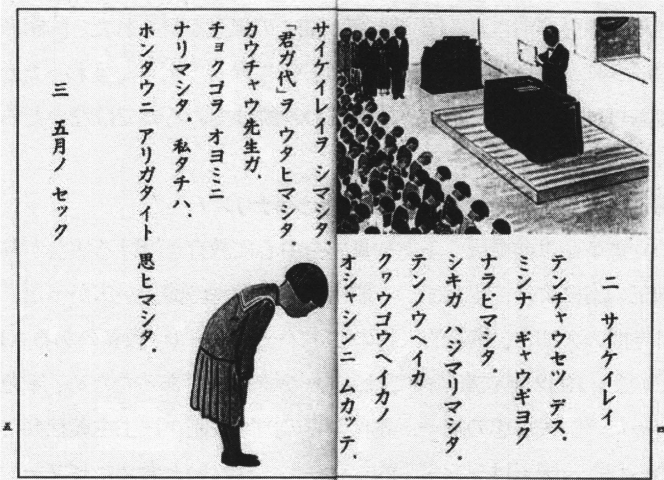 二 サイケイレイ
テンチャウセツ デス。
ミンナ ギャウギヨク
ナラビマシタ。
シキガ ハジマリマシタ。
テンノウヘイカ
クヮウゴウヘイカノ
オシャシンニ ムカッテ、
サイケイレイヲ シマシタ。
「君ガ代」ヲ ウタヒマシタ
カウチャウ先生ガ、
チョクゴヲ オヨミニ
ナリマシタ。私タチハ、
ホンタウニ アリガタイト 思ヒマシタ。
三 五月ノ セック
四
五